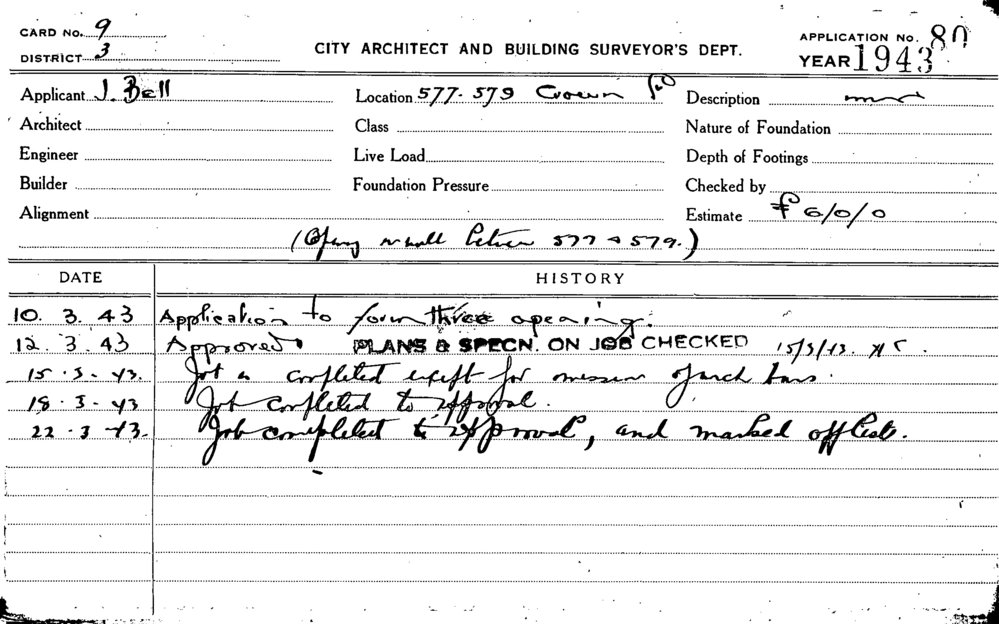 CARD No. 9
DISTRICT 3
CITY ARCHITECT AND BUILDING SURVEYOR'S DEPT.
APPLICATION No. 80
YEAR 1943
Applicant J. Bell
Location 577-579 Crown
Description
Architect
Class
Nature of Foundation
Engineer
Live Load
Depth of Footings
Builder
Foundation Pressure
Checked by
Alignment
Estimate £ 6/0/0
577 & 579.)
DATE HISTORY
10. 3. 43 Application to form three opening.
12. 3. 43 Approved. PLANS & SPECN. ON JOB CHECKED 15/3/43.
15. 3 - 43. Job completed except for omission of arch bars.
18. 3 - 43 Job completed to approval.
22. 3 43. Job completed to approval, and marked off list.